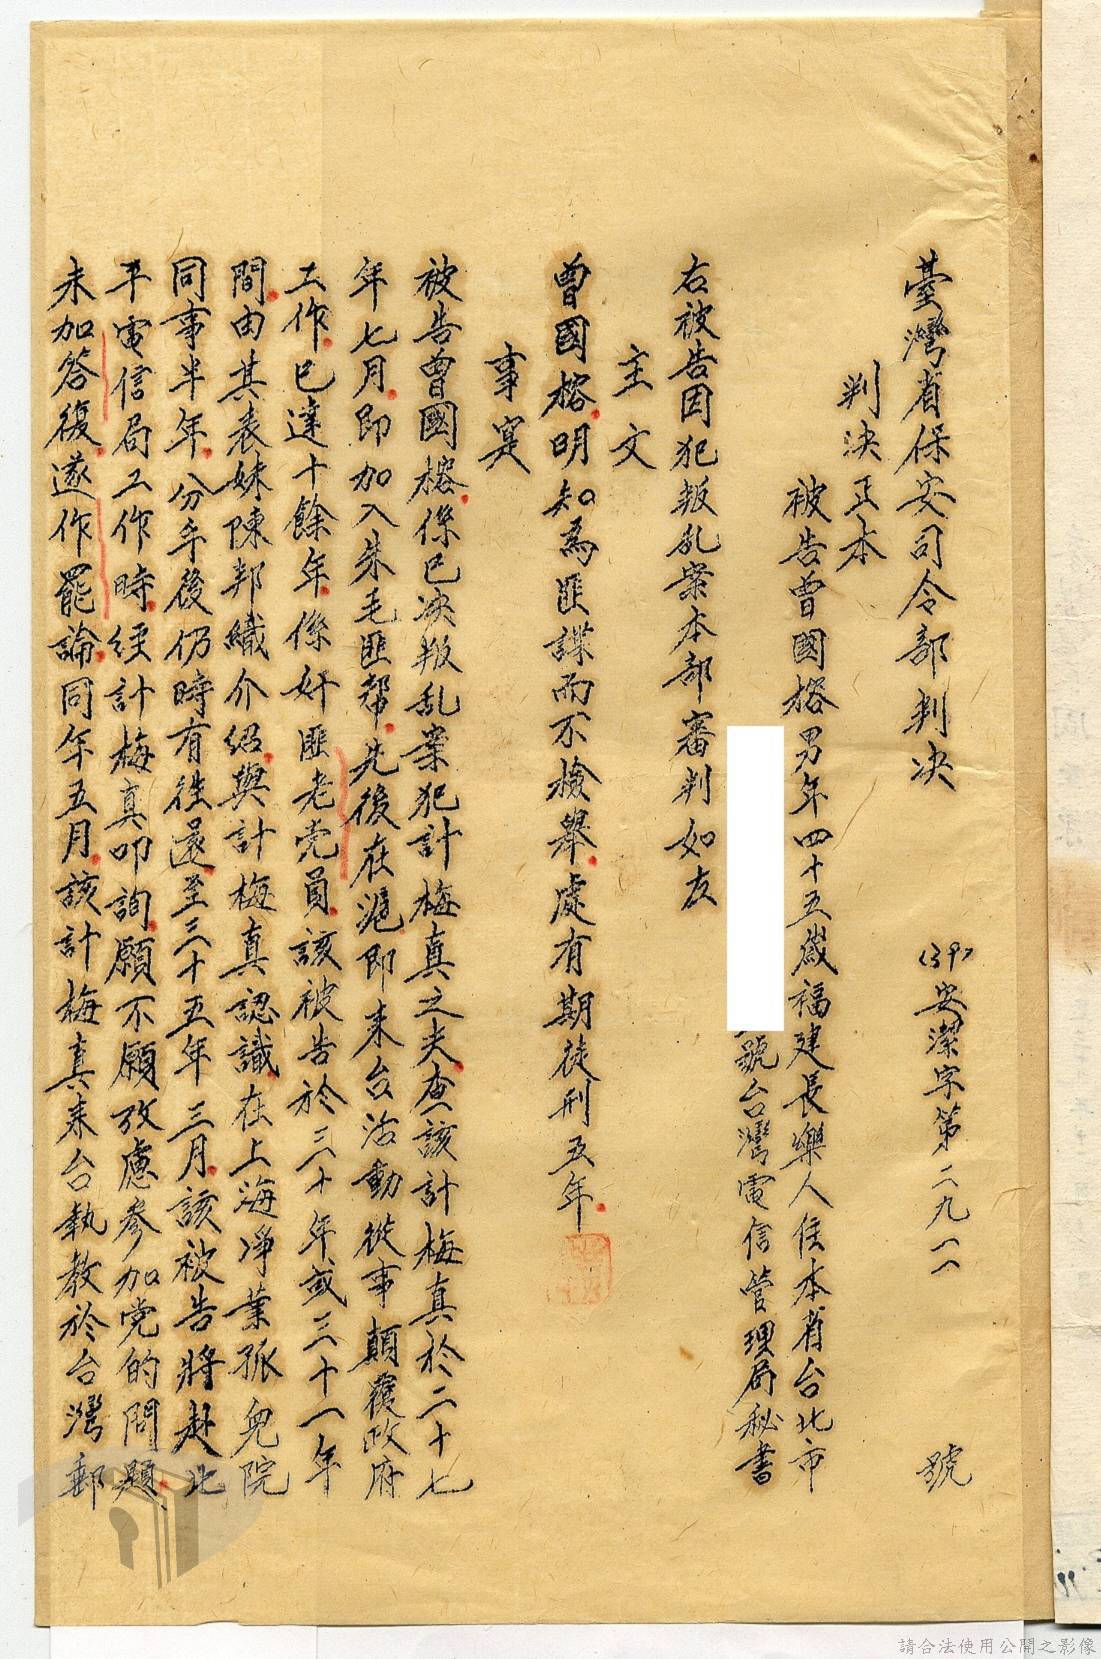 臺灣省保安司令部判决
(39)安潔字第二九一一號
判决正本
被告曾國榕男年四十五歲福建長樂人住本省台北市
號台灣電信管理局秘書
右被告因犯叛乱案本部審判如左
主文
曾國榕明知為匪諜而不檢舉處有期徒刑五年
事寔
被告曾國榕係已决叛乱案犯計梅真之夫查該計梅真於二十七
年七月即加入朱毛匪幫先後在滬即来台活動從事顛覆政府
工作已達十餘年係奸匪老党員該被告於三十年或三十一年
間由其表妹陳邦織介紹與計梅真認識在上海净業孤兒院
同事半年分手後仍時有往還至三十五年三月該被告將赴北
平電信局工作時經計梅真叩詢願不願攷慮參加党的問題
未加答復遂作罷論同年五月該計梅真来台執教於台灣郵
請合法使用公開之影像